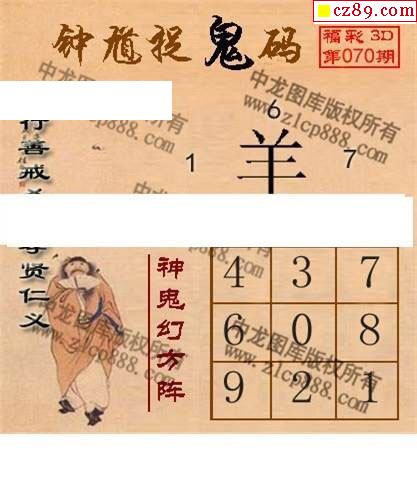 cz89.com
钟馗捉鬼码
福彩 3D
第070期
中龙图库版权所有
www.zlcp888.com
6
1 羊 7
行善戒
贤仁义
神鬼幻方阵
4 3 7
6 0 8
9 2 1
中龙图库版权所有
www.zlcp888.com